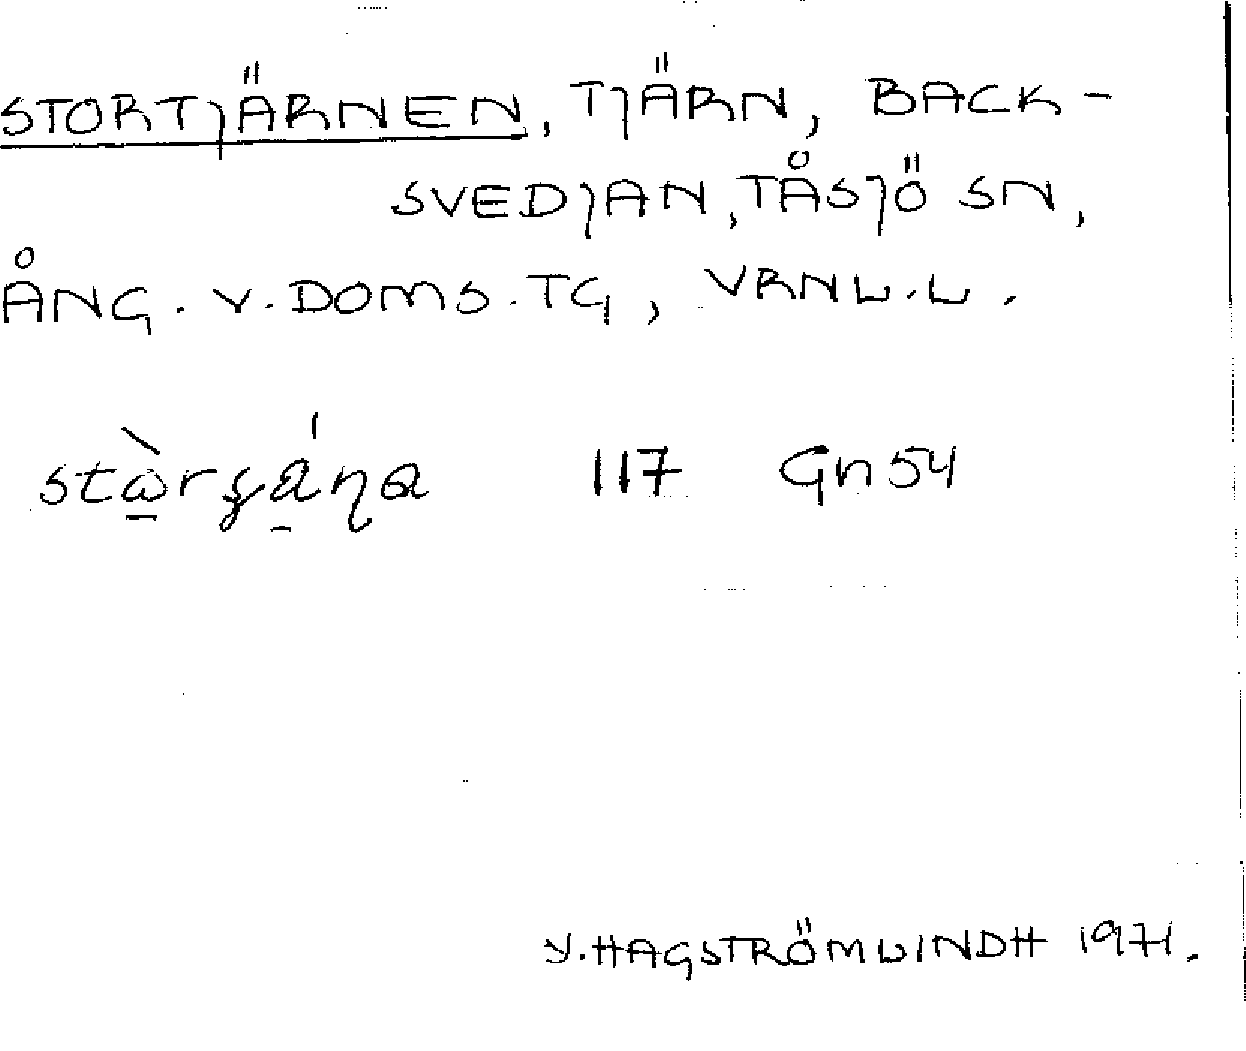 STORTJÄRNEN, TJÄRN, BACK-
SVEDJAN, TÅSJÖ SN,
ÅNG. V. DOMS. TG, VRNL.L.
117 Gn54
Y. HAGSTRÖM LINDH 1971.